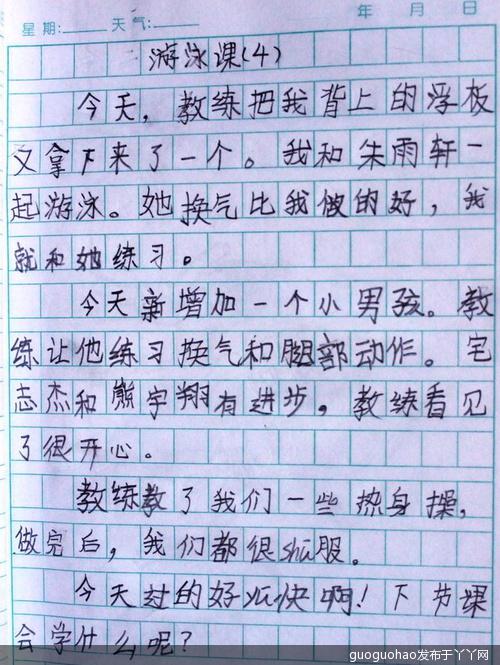 年 月 日
星期: 天气:
游泳课(4)
今天，教练把我背上的浮板
又拿下来了一个。我和朱雨轩一
起游泳。她换气比我做的好，我
就和她练习。
今天新增加一个小男孩。教
练让他练习换气和腿部动作。宅
志杰和熊宇翔有进步，教练看见
了很开心。
教练教了我们一些热身操，
做完后，我们都很shū服。
今天过的好yú快啊！下节课
会学什么呢？
guoguohao发布于丫丫网